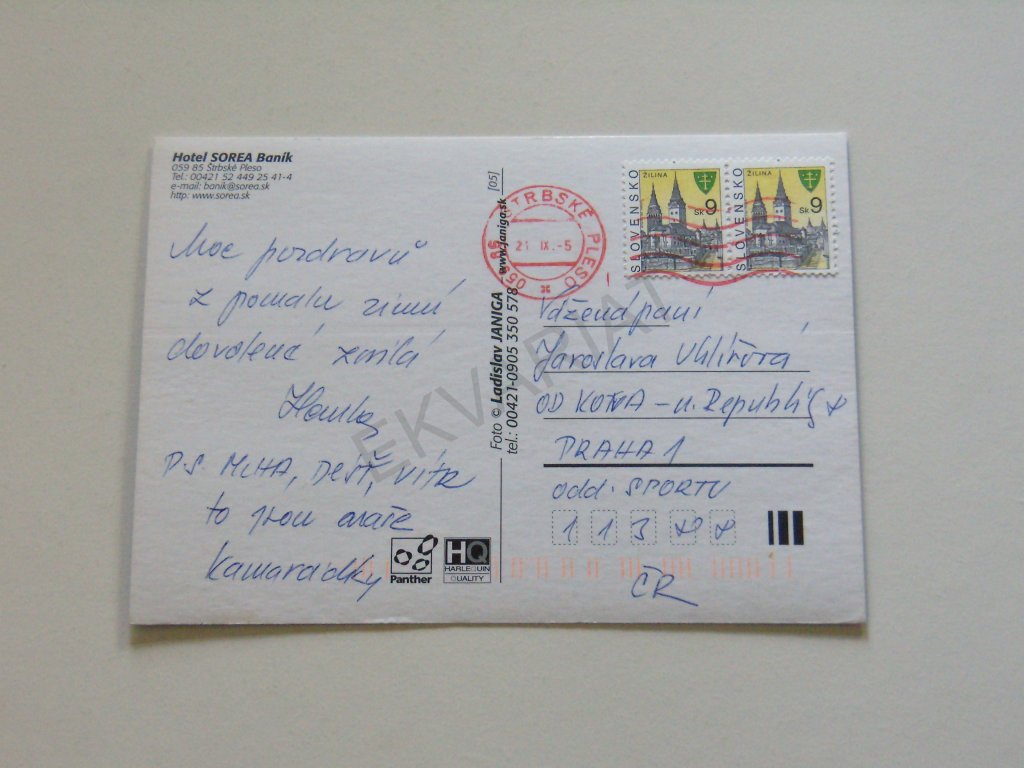 Hotel SOREA Baník
059 85 Štrbské Pleso
Tel.: 00421 52 449 25 41-4
e-mail: banik@sorea.sk
http: www.sorea.sk
Moc pozdravů
z pomalu zimní
dovolené zasílá
P.S. MLHA, DÉŠŤ, VÍTR
to jsou naše
kamarádky
Panther
HQ
HARLEQUIN
QUALITY
Foto © Ladislav JANIGA www.janiga.sk [05]
tel.: 00421-0905 350 578
059 85 ŠTRBSKÉ PLESO
21. IX.-5
SLOVENSKO
ŽILINA
Sk 9
SLOVENSKO
ŽILINA
Sk 9
Vážená paní
Jaroslava Uhlířová
OD KOTVA - n. Republiky
PRAHA 1
odd. SPORTU
113
ČR
EKVARIAT